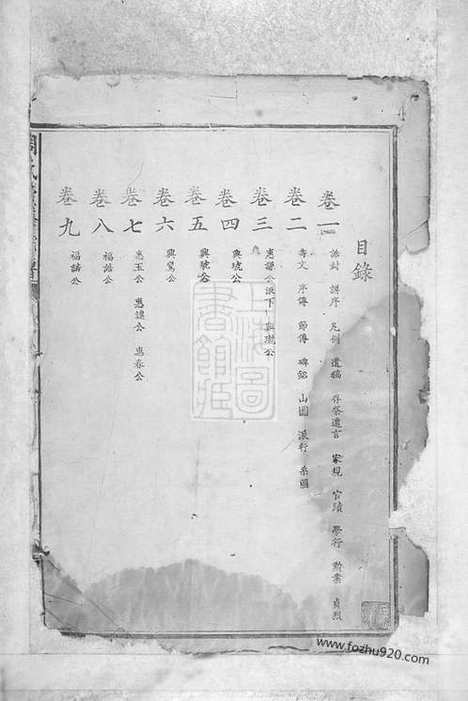 目錄
卷一 誥封 譜序 凡例 遺稿 存祭遺言 家規 官蹟 學行 勲業 貞烈
卷二 壽文 序傳 節傳 碑銘 山圖 派行 系圖
卷三
卷四 興琥公
卷五 興琥公
卷六 興駕公
卷七 惠玉公 惠遠公 惠春公
卷八 福誥公
卷九 福誥公
上海圖書館藏
www.fozhu920.com